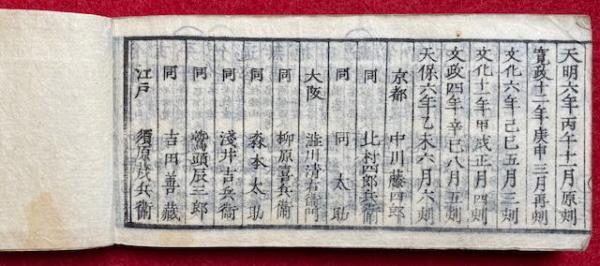 天明六年丙午十一月原刻
寛政十二年庚申三月再刻
文化六年己巳五月三刻
文化十一年甲戌正月四刻
文政四年辛巳八月五刻
天保六年乙未六月六刻
京都 中川藤四郎
同 北村四郎兵衞
同 同太助
大阪 澁川清右衞門
同 柳原喜兵衞
同 森本太助
同 淺井吉兵衞
同 鷲頭辰三郎
同 吉田善藏
江戸 須原茂兵衞